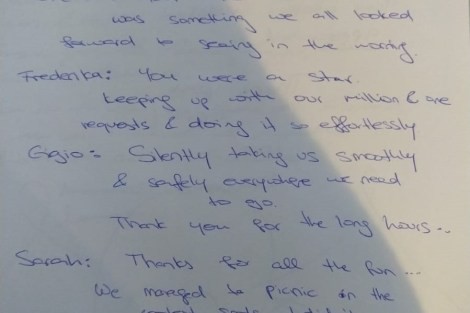 was something we all looked
forward to seeing in the morning.
Frederika: You were a star.
keeping up with our million & one
requests & doing it so effortlessly
Gigio: Silently taking us smoothly
& safely everywhere we need
to go.
Thank you for the long hours..
Sarah: Thanks for all the fun...
We managed to picnic in the